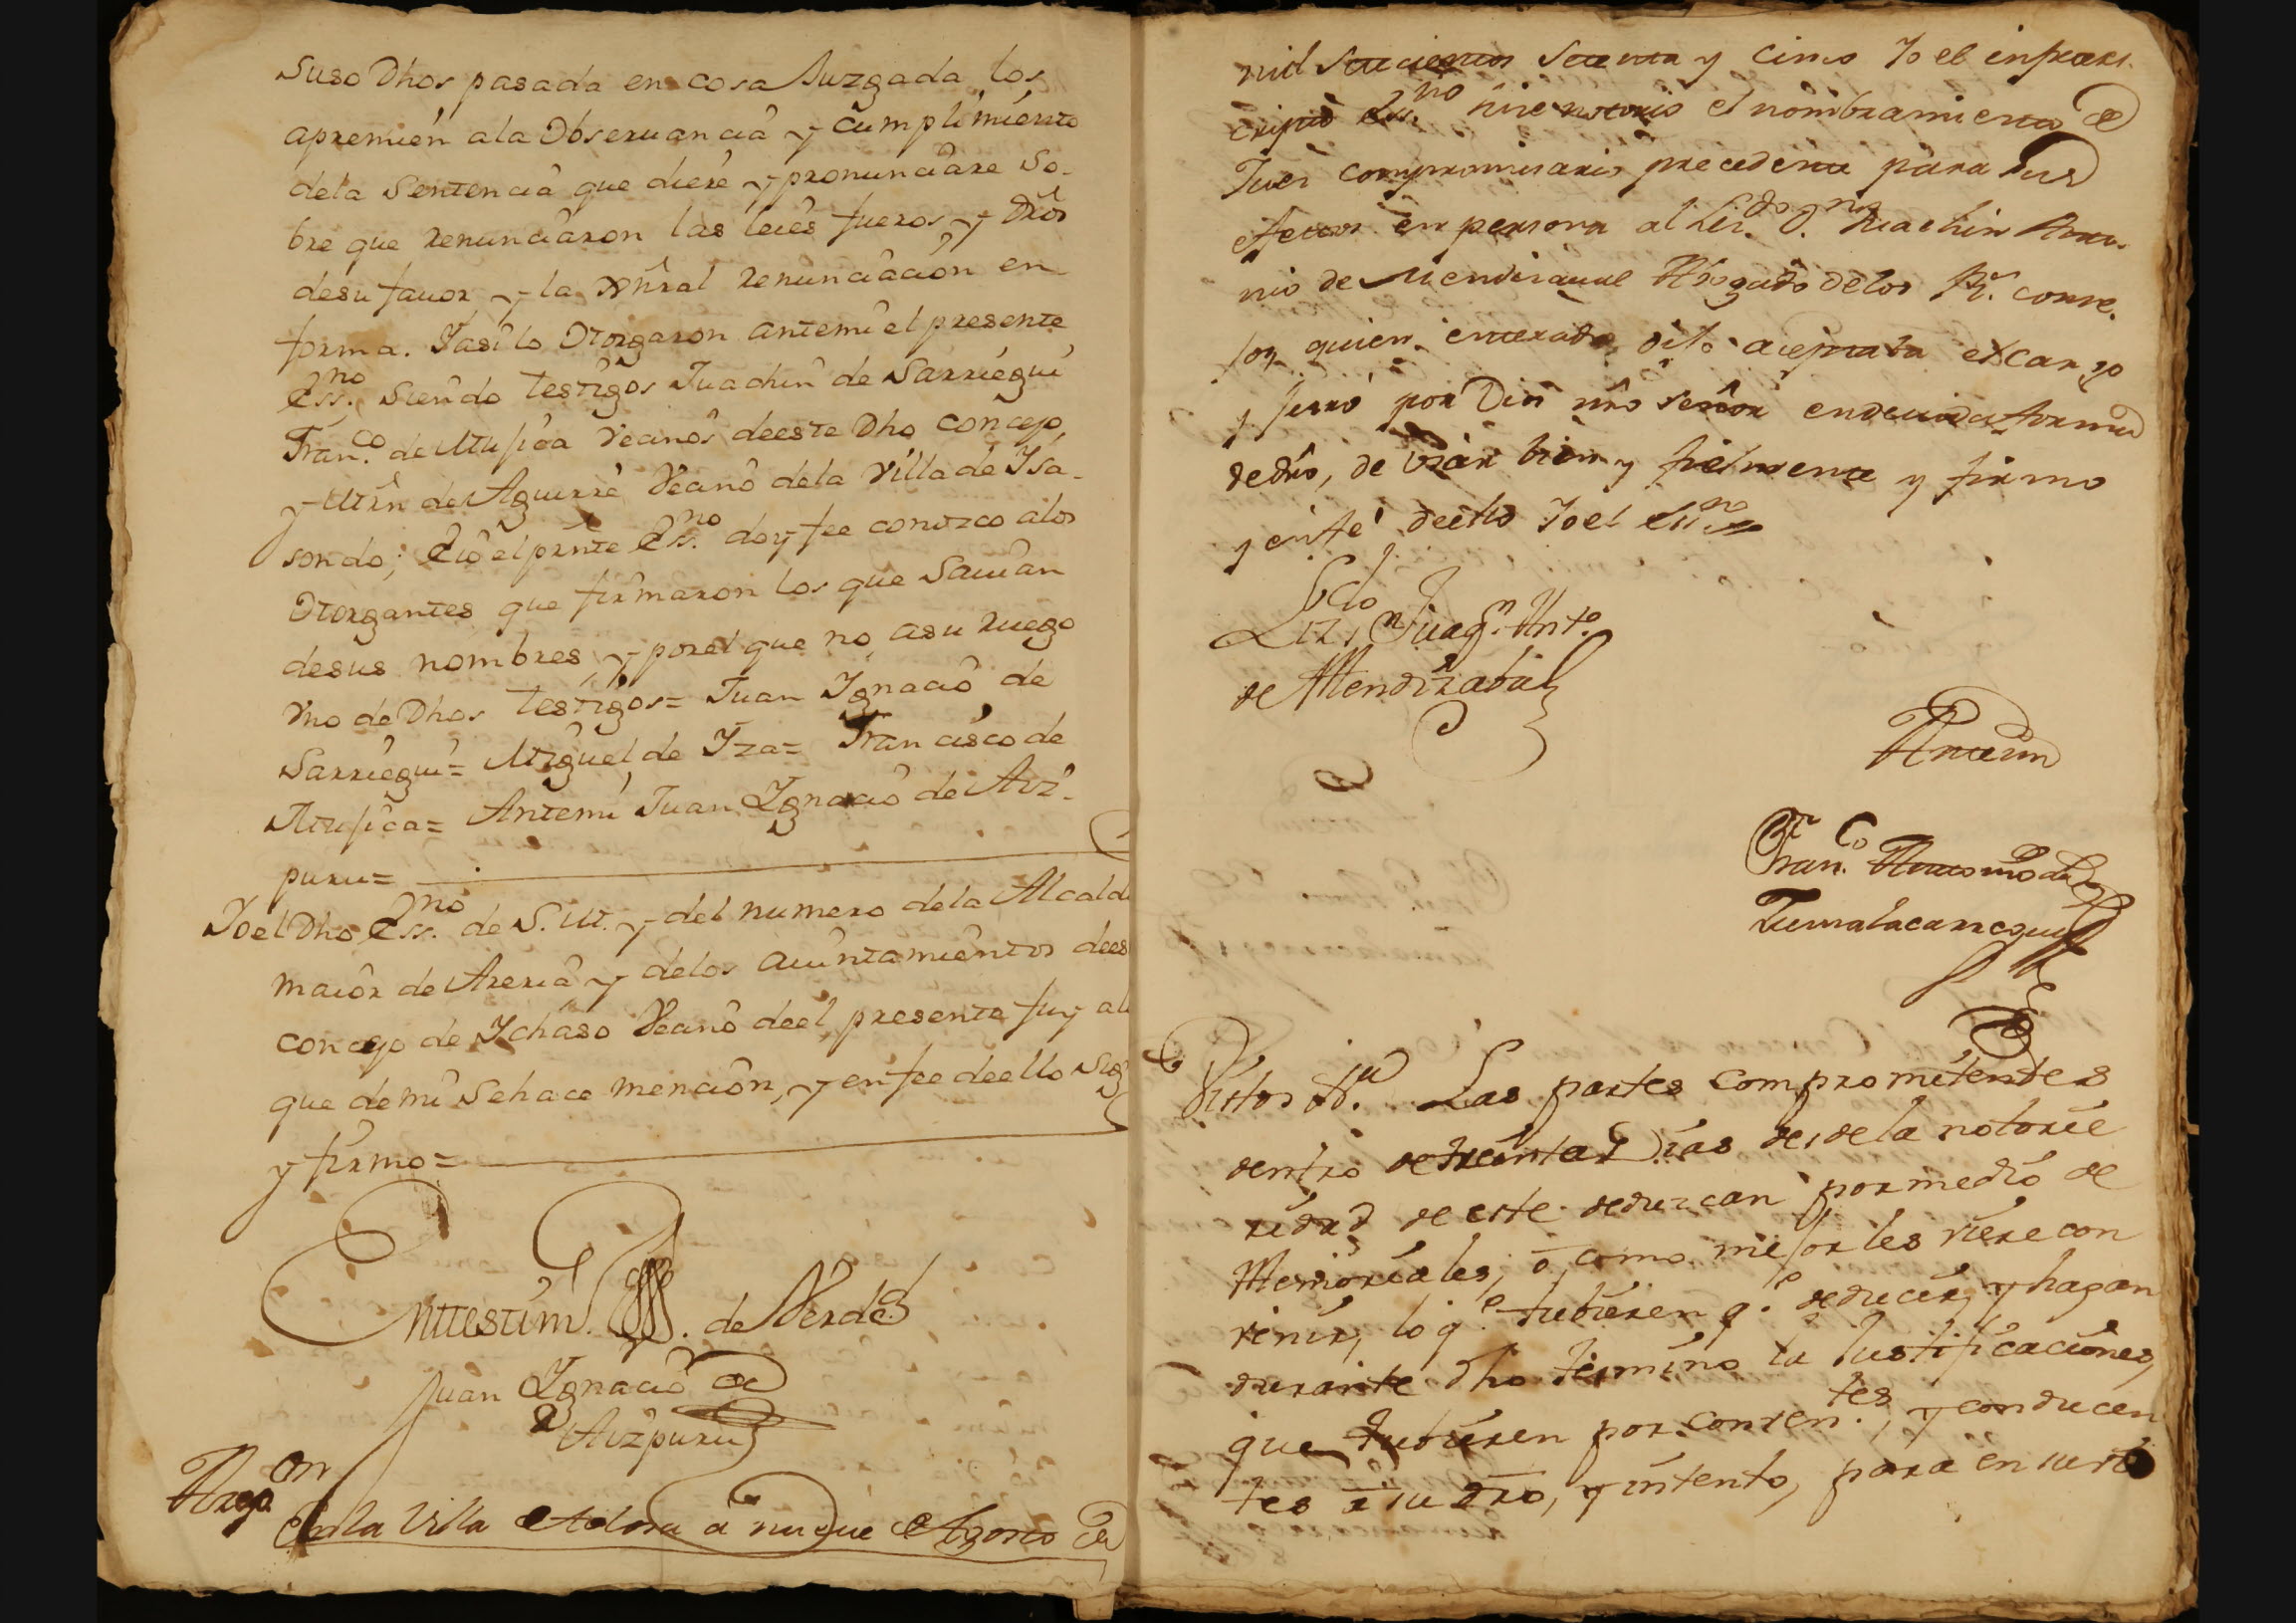 Suso Dhos pasada en cosa Juzgada, los
apremien a la Obseruancia y cumplimiento
dela Sentencia que diere y pronunciare so-
bre que renunciaron las leies fueros, y Dros
desu fauor y la Gnral renunciacion en
forma. Yasilo Otorgaron antemi el presente
Ess.no Siendo testigos Juachin de Sarriegui
Fran.co de Mujica Vecinos deeste Dho concejo,
y Mrn de Aguirre Vecino dela Villa de Ysa-
sondo; E io el prnte Ess.no doy fee conozco alos
Otorgantes que firmaron los que Sauian
desus nombres, y porel que no, asu ruego
vno de Dhos testigos= Juan Ygnacio de
Sarriegui= Miguel de Yza= Francisco de
Mujica= Antemi Juan Ygnacio de Aiz-
puru=
Yo el Dho Ess.no de S.M. y del numero dela Alcald
maior de Areria y delos aiuntamientos dees
concejo de Ychaso Vecino deel presente fuy al
que de mi Sehace mencion, y enfee deello Sig
y firmo=
Enttestim. de Verdd
Juan Ygnacio de
Aizpuru
En la Villa de a nueue de Agosto de
mil setecientos setenta y cinco Yo el infraes-
cripto Ess.no hice notorio el nombramiento de
Juez compromisario precedente para sus
efectos en persona al Lic.do D.n Juachin Anto-
nio de Mendizaual Abogado delos R.s conse-
jos, quien enterado dijo aceptaba el cargo
y juró por Dios nro señor en deuida forma
de dro, de vsar bien y fielmente y firmo
y enfe deello Yo el Ess.no
Lizdo Dn Juaqn Anto
de Mendizabal
Antemi
Fran.co Antonio de
Zumalacarregui
Vistos Las partes comprometentes
dentro de treinta Dias desde la notorie
ridad de este deduzcan por medio de
Memoriales, ó como mejor les viere con
venir, lo q.e tubieren q.e deducir, y hagan
durante dho termino la Justificaciones,
que tubieren por conven.tes, y conducen
tes a su dro, y intento, para en su